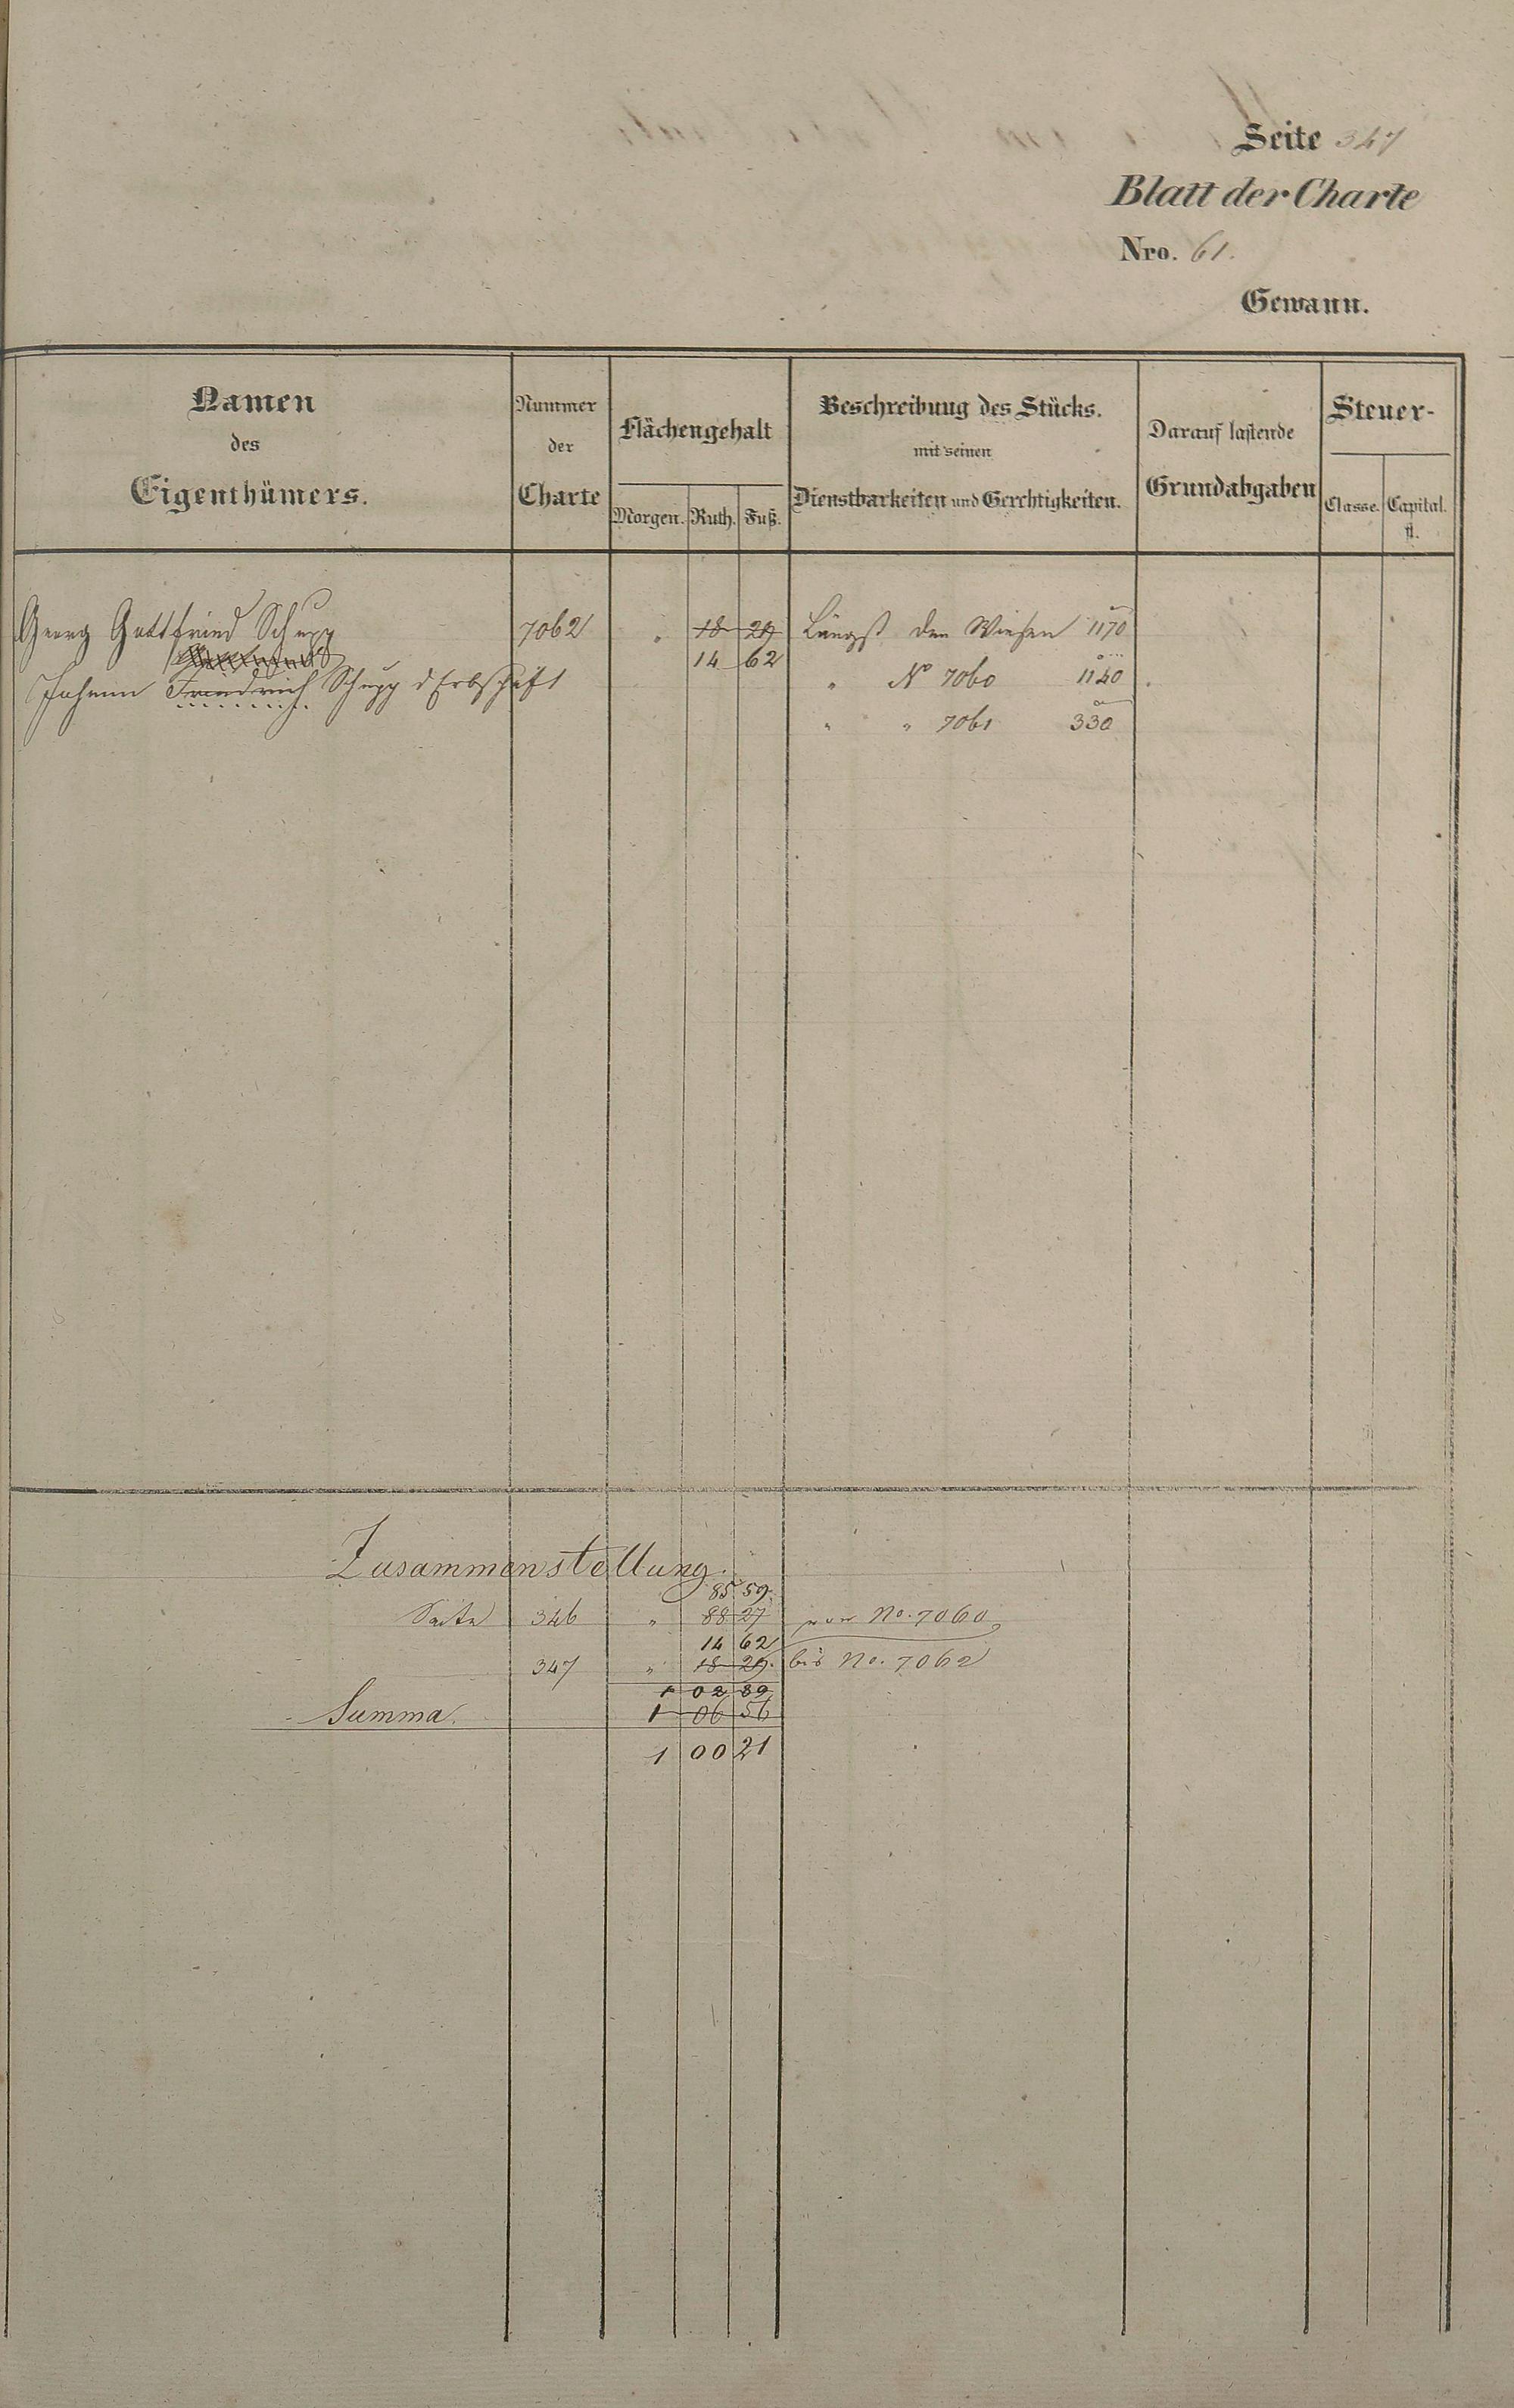 Seite 347
Blatt der Charte
Nro. 61.
Gewann.
Namen
des
Eigenthümers.
Nummer
der
Charte
Flächengehalt
Morgen. Ruth. Fuß.
Beschreibung des Stücks.
mit seinen
Dienstbarkeiten und Gerechtigkeiten.
Darauf lastende
Grundabgaben
Steuer-
Classe. Capital.
fl.
Georg Gottfried Schupp 7062 " 18 29 Längst den Wiesen 1170
14 62
Johann Friedrich Schupp d Erbschaft " No 7060 1140
" " 7061 330
Zusammenstellung.
85 59.
Seite 346 " 88 27 von No. 7060
14 62
347 " 18 29. bis No. 7062
1 02 89
Summa. 1 06 56
1 00 21